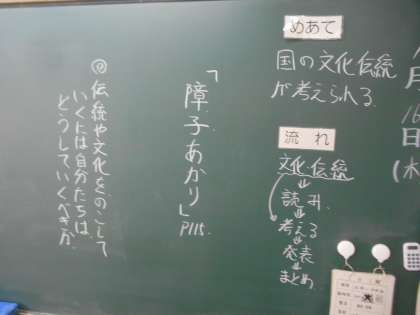 月
16
日
(木
めあて
国の文化伝統
が考えられる
流れ
文化伝統
↓
読み
↓
考える
↓
発表
↓
まとめ
「障子あかり」P115.
◎伝統や文化をのこして
いくには自分たちは、
どうしていくべきか。